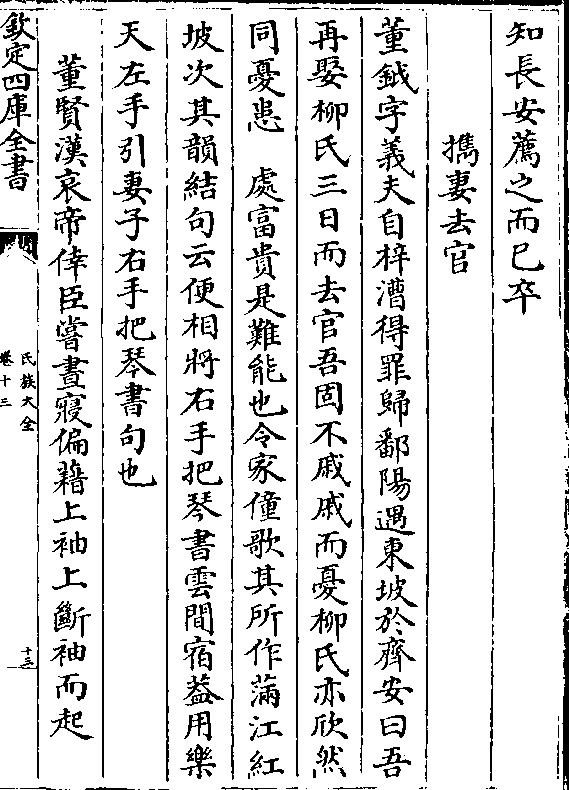 知長安薦之而已卒
攜妻去官
董鉞字義夫自梓漕得罪歸鄱陽遇東坡於齊安曰吾
再娶柳氏三日而去官吾固不戚戚而憂柳氏亦欣然
同憂患　處富貴是難能也令家僮歌其所作滿江紅
坡次其韻結句云便相將右手把琴書雲間宿葢用樂
天左手引妻子右手把琴書句也
董賢漢哀帝倖臣嘗晝寢偏藉上袖上斷袖而起
欽定四庫全書
氏族大全
卷十三